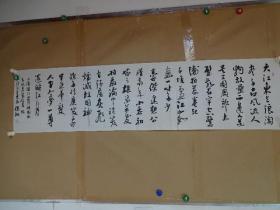 大江東去浪淘
盡千古風流人
物故壘西邊人
道是三國周郎赤
壁亂石穿空驚
濤拍岸卷起
千堆雪江山如
畫一時多少
豪傑遙想公
瑾當年小喬初
嫁了雄姿英發
羽扇綸巾談笑
間檣櫓灰飛
煙滅故國神
遊多情應笑我
早生華髮
人生如夢一尊
還酹江月